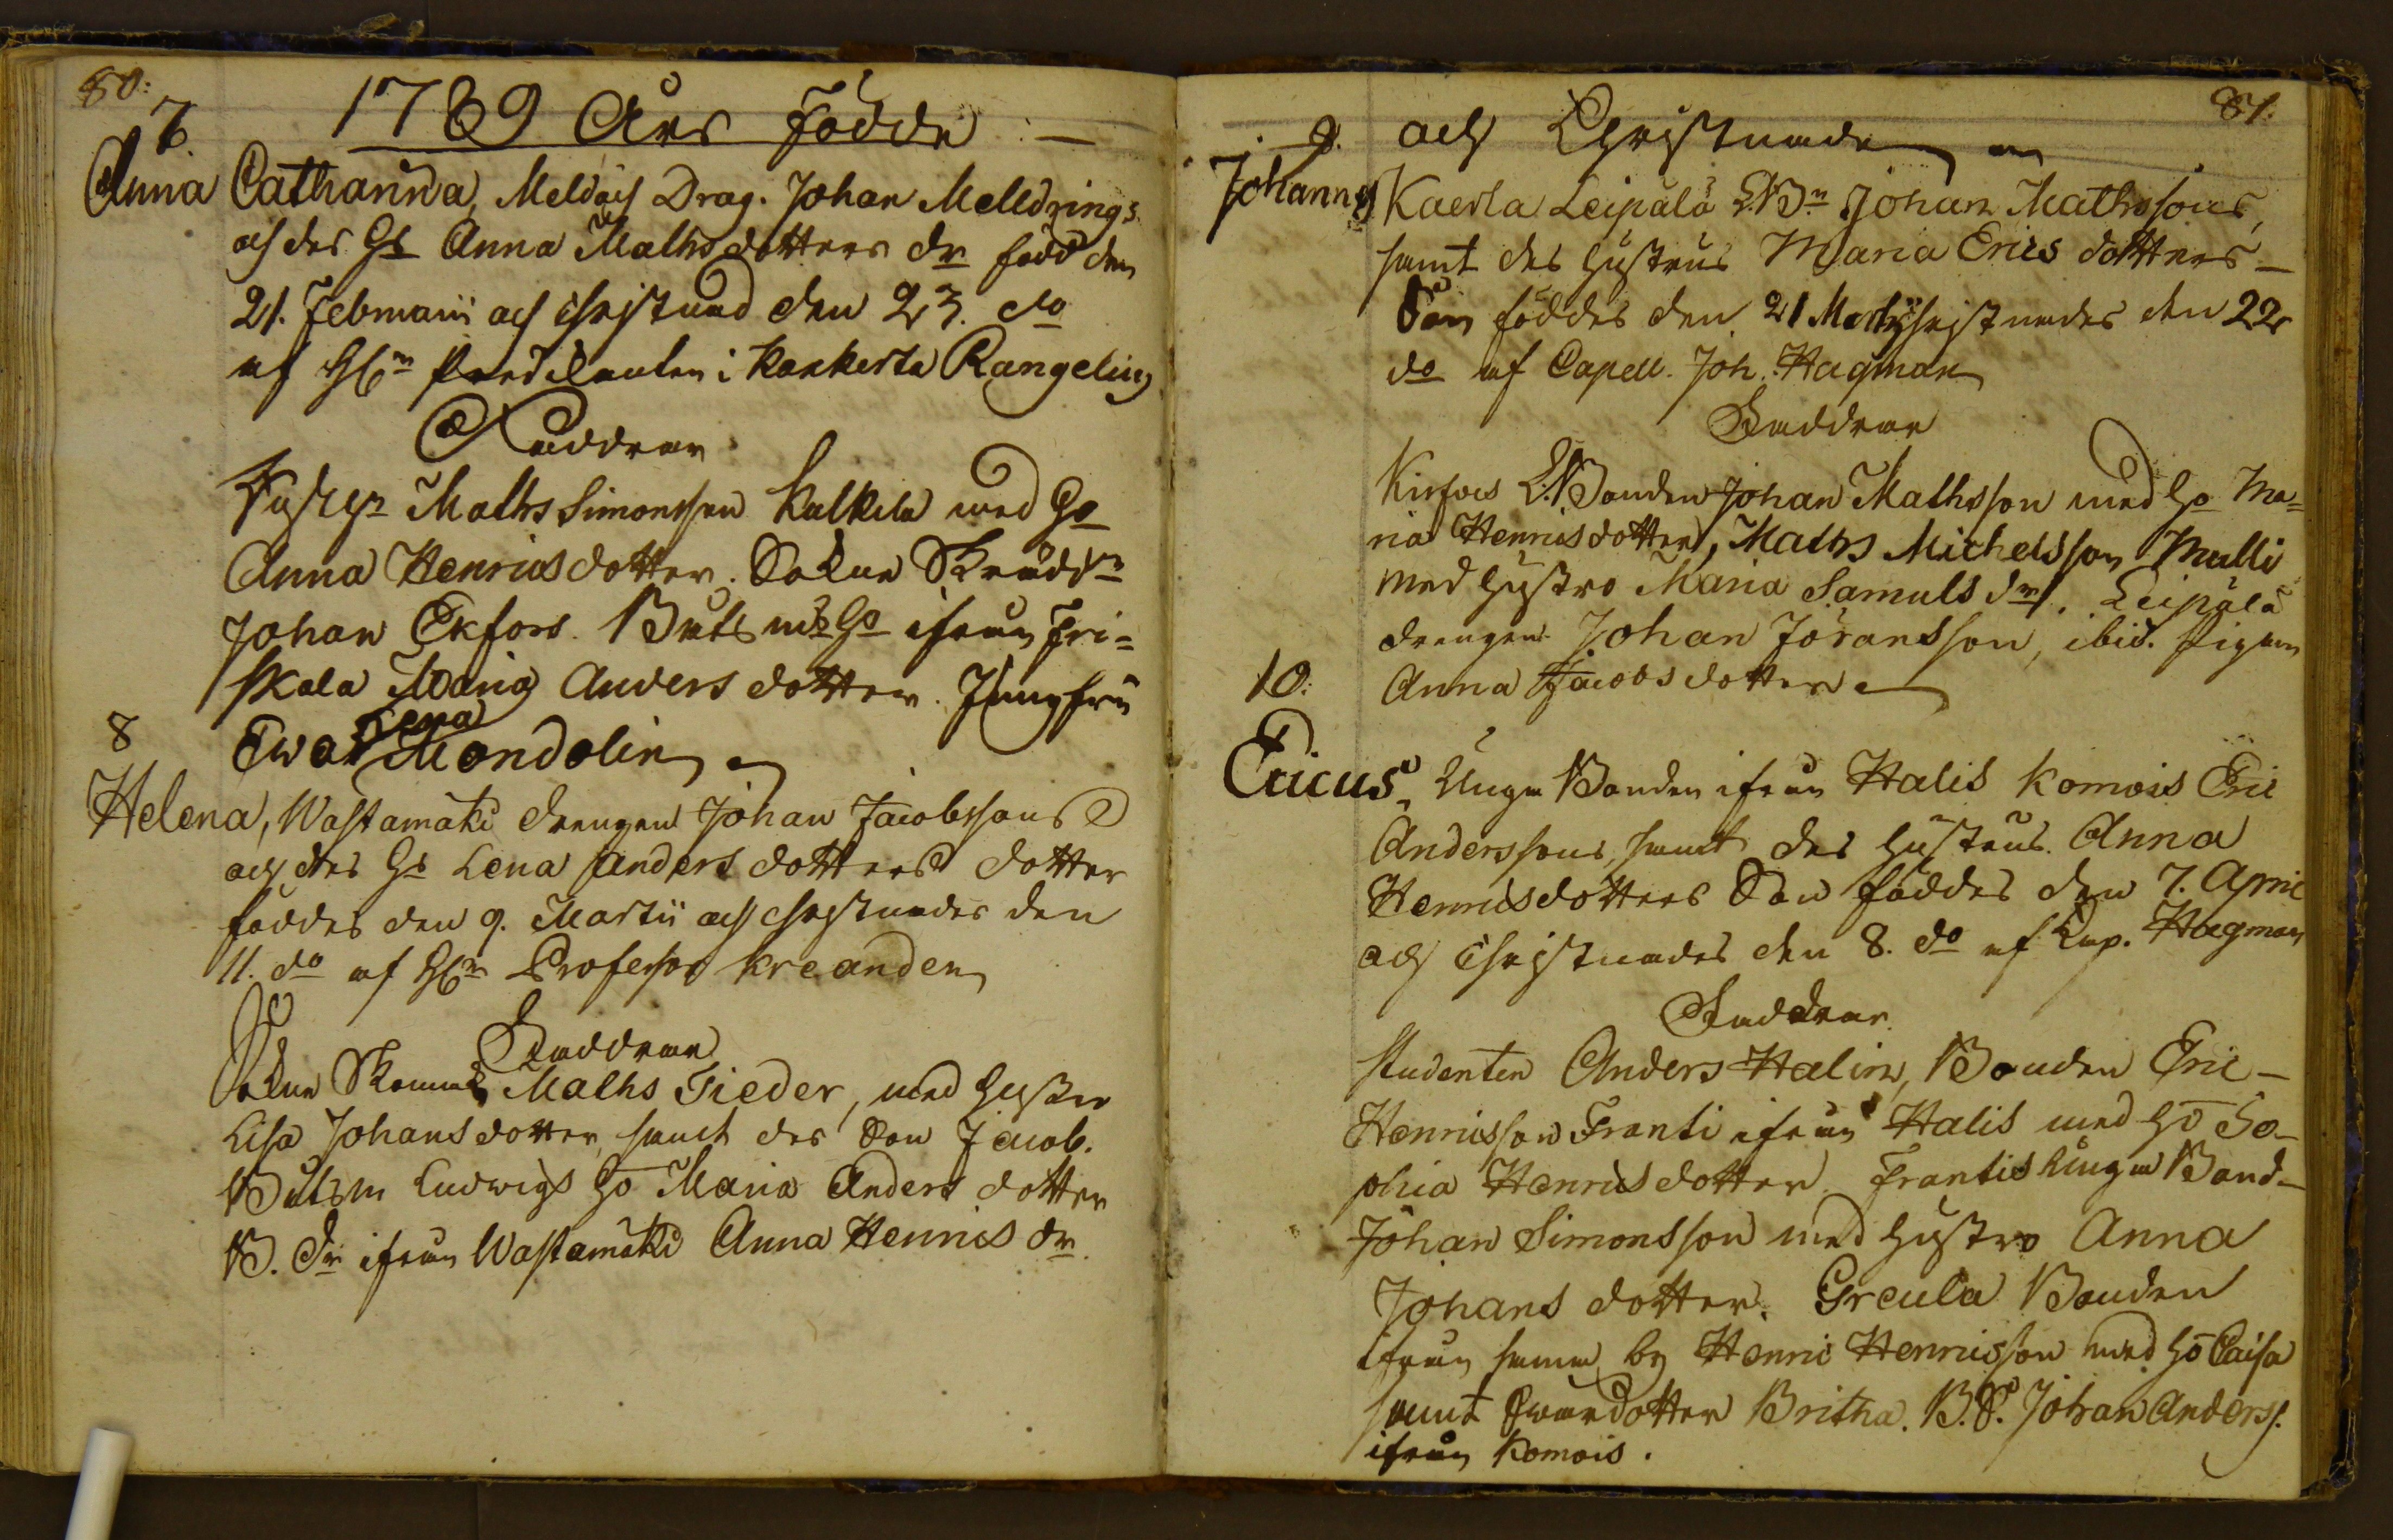 80:
1789 Års Födde
7.
Anna Catharina, Meldois Drag. Johan Melldrings
och des Hs Anna Mathsdotters dr född den
21. Februarii och christnad den 23. do
af HE:n Predikanten i Kankerla Rangelius
Faddrar
Mathis Simonsson Kulkila med Ho
Anna Henricsdotter. Sokne Skrädd:n
Johan Ekfors. Båts m:s Ho ifrån Fri=
skala Maria Anders dotter. Jungfru
Ewa Lena Mondolin
8
Helena, Wastamäki drengen Johan Jacobssons
och des Hs Lena Anders dotters dotter
föddes den 9. Martii och christnades den
11. do af HE:n Professor Kreander
Faddrar
Sokne Maths Fieder, med Hustru
Lisa Johansdotter, samt des Son Jacob.
Båtsm Ludwigs Ho Maria Anders dotter
B. Dr ifrån Wastamäki Anna Henrics dr
81.
och Christnade
9.
Johannes Kaerla Leipälä Johan Mathssons,
samt des hustrus Maria Erics dotters
Son föddes den 21 Martii christnades den 22
do af Capell. Joh. Hagman
Faddrar
Bonden Johan Mathsson med Ho Ma=
ria Henricsdotter, Maths Michelsson Mulli
med Hustro Maria Samuls dr. Leipälä
drengen Johan Jöransson, ibid. pigan
Anna Jacobsdotter
10.
Ericus, Unga Bonden ifrån Halis Komois Eric
Anderssons, samt des hustrus Anna
Henricsdotters Son föddes den 7. April
och Christnades den 8. do af Cap. Hagman
Faddrar
Studenten Anders Halin, Bonden Eric
Henricsson Franti ifrån Halis med Ho So-
phia Henricsdotter Frantis Unga Bond-
Johan Simonsson med Hustro Anna
Johans dotter. Grcula Bonden
ifrån samma by Henric Henricsson med Ho Caisa
samt Swärdotter Britha. B.S. Johan Anderss.
ifrån Komois.